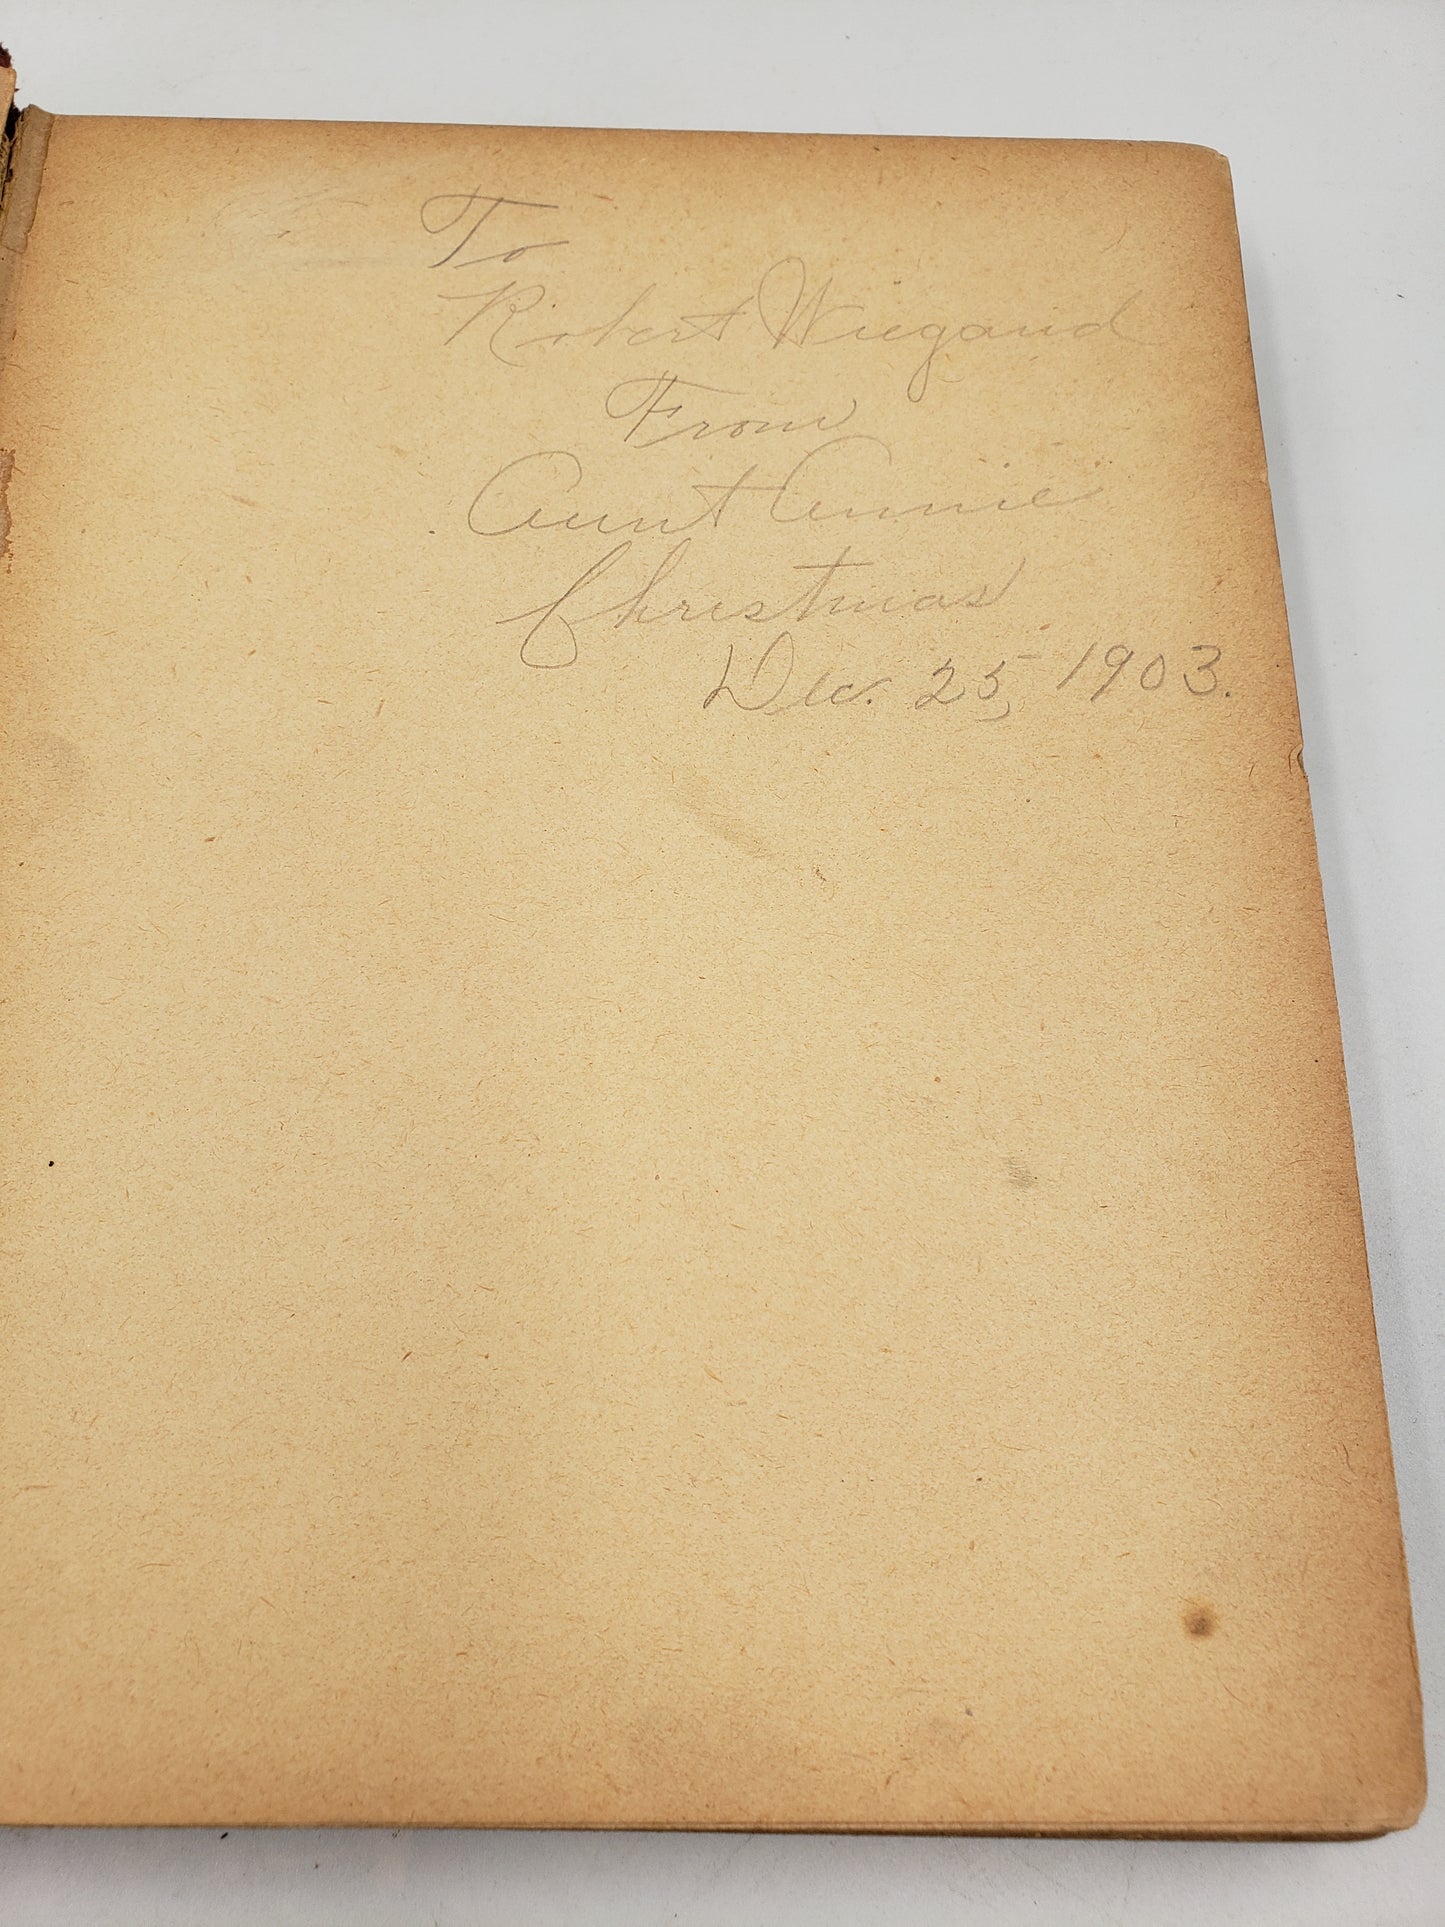 To
Robert Wiegand
From
Aunt Annie
Christmas
Dec. 25, 1903.